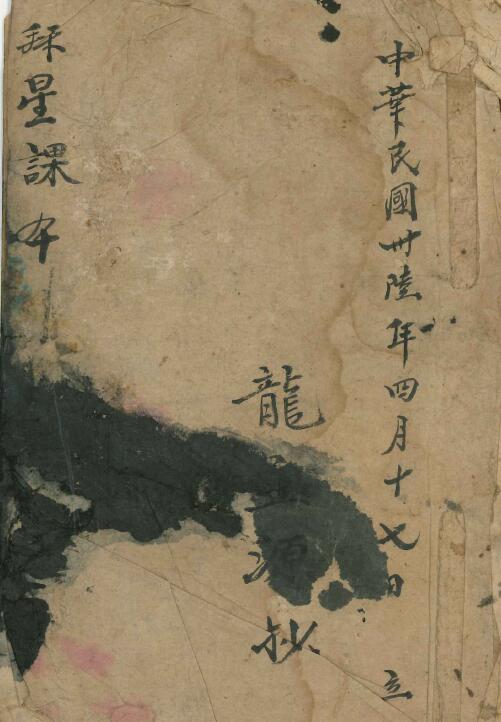 中華民國卅陸年四月十七日 立
龍源抄
拜星課本